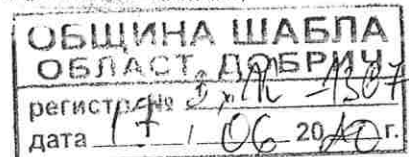 ОБЩИНА ШАБЛА
ОБЛАСТ ДОБРИЧ
регистр. № -1307
дата 17 / 06 2010 г.